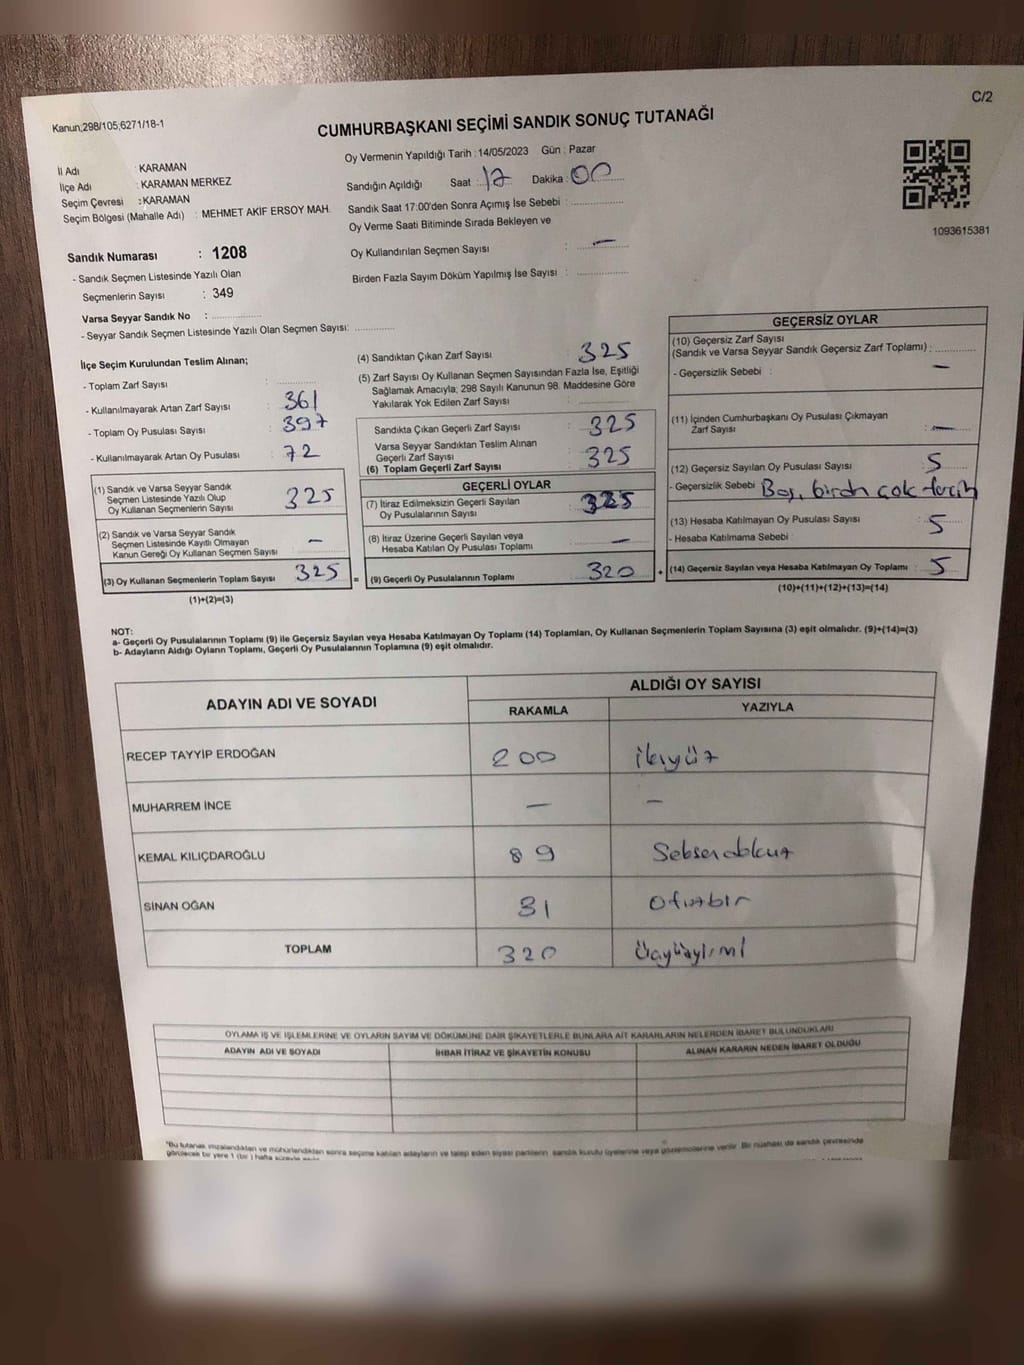 C/2
Kanun;298/105;6271/18-1
CUMHURBAŞKANI SEÇİMİ SANDIK SONUÇ TUTANAĞI
1093615381
İl Adı : KARAMAN
İlçe Adı : KARAMAN MERKEZ
Seçim Çevresi : KARAMAN
Seçim Bölgesi (Mahalle Adı) : MEHMET AKİF ERSOY MAH.
Sandık Numarası : 1208
- Sandık Seçmen Listesinde Yazılı Olan
Seçmenlerin Sayısı : 349
Varsa Seyyar Sandık No :
- Seyyar Sandık Seçmen Listesinde Yazılı Olan Seçmen Sayısı:
Oy Vermenin Yapıldığı Tarih : 14/05/2023 Gün : Pazar
Sandığın Açıldığı Saat : 17 Dakika : 00
Sandık Saat 17:00'den Sonra Açımış İse Sebebi :
Oy Verme Saati Bitiminde Sırada Bekleyen ve
Oy Kullandırılan Seçmen Sayısı : —
Birden Fazla Sayım Döküm Yapılmış İse Sayısı :
İlçe Seçim Kurulundan Teslim Alınan;
- Toplam Zarf Sayısı :
- Kullanılmayarak Artan Zarf Sayısı : 361
- Toplam Oy Pusulası Sayısı : 397
- Kullanılmayarak Artan Oy Pusulası : 72
(1) Sandık ve Varsa Seyyar Sandık
Seçmen Listesinde Yazılı Olup
Oy Kullanan Seçmenlerin Sayısı : 325
(2) Sandık ve Varsa Seyyar Sandık
Seçmen Listesinde Kayıtlı Olmayan
Kanun Gereği Oy Kullanan Seçmen Sayısı : —
(3) Oy Kullanan Seçmenlerin Toplam Sayısı : 325 =
(1)+(2)=(3)
(4) Sandıktan Çıkan Zarf Sayısı : 325
(5) Zarf Sayısı Oy Kullanan Seçmen Sayısından Fazla İse, Eşitliği
Sağlamak Amacıyla; 298 Sayılı Kanunun 98. Maddesine Göre
Yakılarak Yok Edilen Zarf Sayısı :
Sandıkta Çıkan Geçerli Zarf Sayısı : 325
Varsa Seyyar Sandıktan Teslim Alınan
Geçerli Zarf Sayısı : 325
(6) Toplam Geçerli Zarf Sayısı
GEÇERLİ OYLAR
(7) İtiraz Edilmeksizin Geçerli Sayılan
Oy Pusulalarının Sayısı : 325
(8) İtiraz Üzerine Geçerli Sayılan veya
Hesaba Katılan Oy Pusulası Toplamı : —
(9) Geçerli Oy Pusulalarının Toplamı : 320 +
GEÇERSİZ OYLAR
(10) Geçersiz Zarf Sayısı
(Sandık ve Varsa Seyyar Sandık Geçersiz Zarf Toplamı) :
- Geçersizlik Sebebi : —
(11) İçinden Cumhurbaşkanı Oy Pusulası Çıkmayan
Zarf Sayısı : —
(12) Geçersiz Sayılan Oy Pusulası Sayısı : 5
- Geçersizlik Sebebi Boş, birden çok tercih
(13) Hesaba Katılmayan Oy Pusulası Sayısı : 5
- Hesaba Katılmama Sebebi
(14) Geçersiz Sayılan veya Hesaba Katılmayan Oy Toplamı : 5
(10)+(11)+(12)+(13)=(14)
NOT:
a- Geçerli Oy Pusulalarının Toplamı (9) ile Geçersiz Sayılan veya Hesaba Katılmayan Oy Toplamı (14) Toplamları, Oy Kullanan Seçmenlerin Toplam Sayısına (3) eşit olmalıdır. (9)+(14)=(3)
b- Adayların Aldığı Oyların Toplamı, Geçerli Oy Pusulalarının Toplamına (9) eşit olmalıdır.
ADAYIN ADI VE SOYADI ALDIĞI OY SAYISI
RAKAMLA YAZIYLA
RECEP TAYYİP ERDOĞAN 200 ikiyüz
MUHARREM İNCE — —
KEMAL KILIÇDAROĞLU 89 Seksendokuz
SİNAN OĞAN 31 Otuzbir
TOPLAM 320 Üçyüzyirmi
OYLAMA İŞ VE İŞLEMLERİNE VE OYLARIN SAYIM VE DÖKÜMÜNE DAİR ŞİKAYETLERLE BUNLARA AİT KARARLARIN NELERDEN İBARET BULUNDUKLARI
ADAYIN ADI VE SOYADI İHBAR İTİRAZ VE ŞİKAYETİN KONUSU ALINAN KARARIN NEDEN İBARET OLDUĞU
*Bu tutanak imzalandıktan ve mühürlendikten sonra seçime katılan adayların ve talep eden siyasi partilerin sandık kurulu üyelerine veya gözlemcilerine verilir. Bir nüshası da sandık çevresinde
görülecek bir yere 1 (bir) hafta süreyle